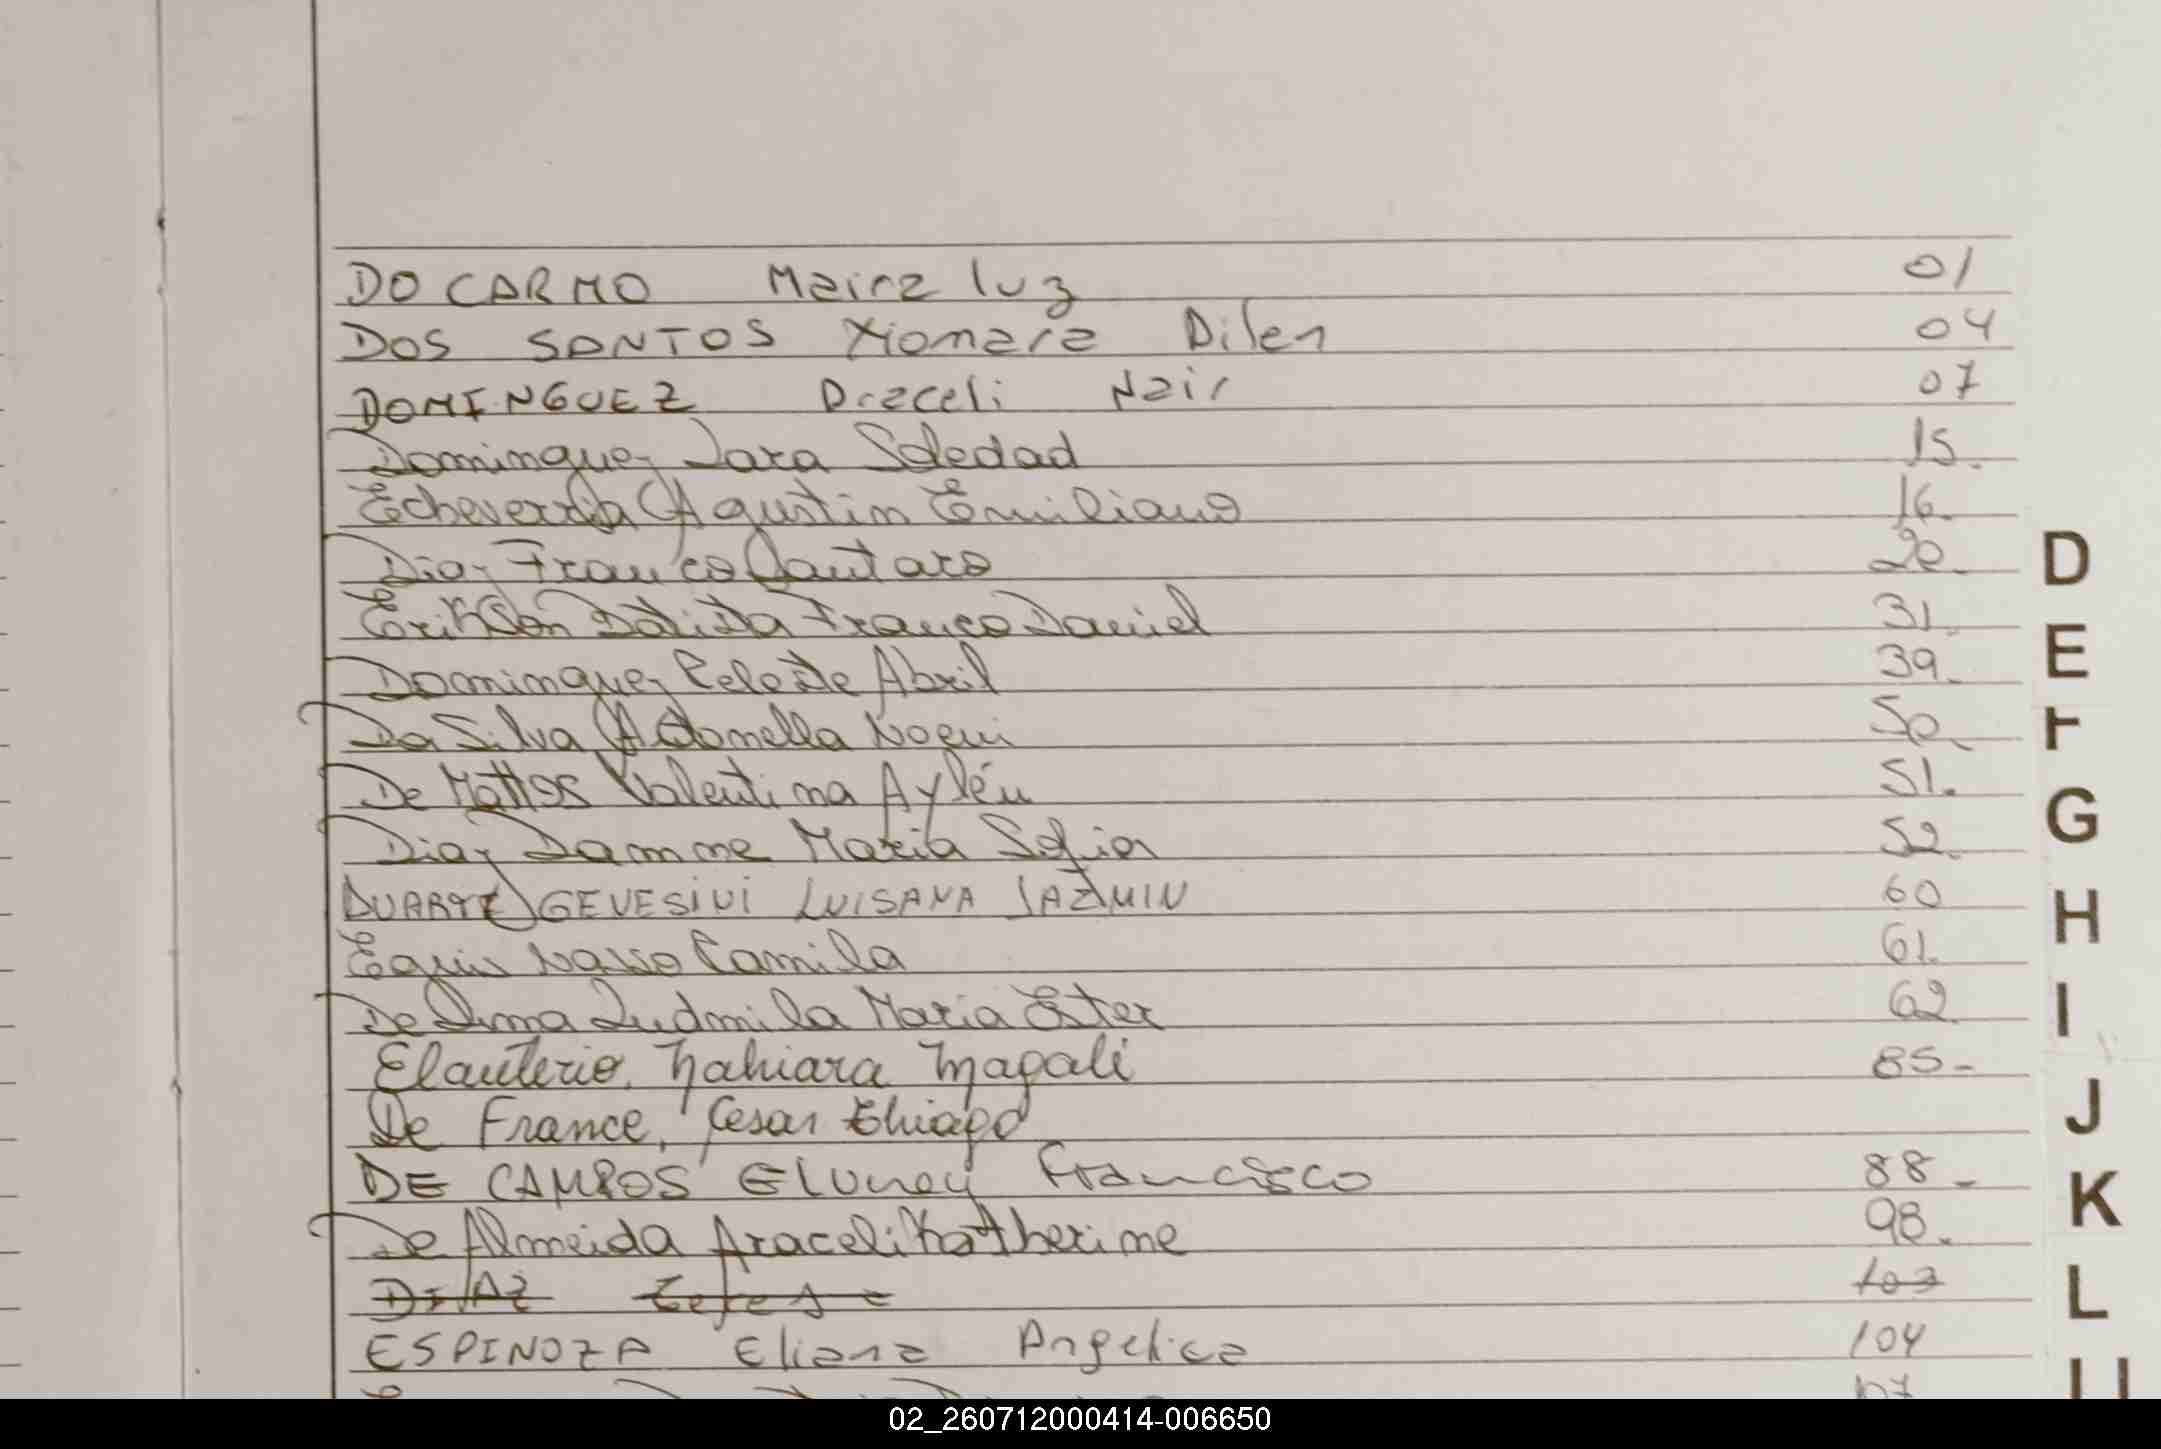 DO CARMO Maira luz 01
DOS SANTOS Xiomara Dilen 04
DOMINGUEZ Araceli Nair 07
Dominguez Sara Soledad 15.
Echeverria Agustin Emiliano 16.
Diaz Franco Lautaro 20.
Erikson Franco Daniel 31.
Dominguez Celeste Abril 39.
Da Silva Noemi 50.
De Mattos Valentina Aylén 51.
Diaz Damme Maria Sofia 52.
DUARTE GEVESINI LUISANA JAZMIN 60
Camila 61.
De Lima Ludmila Maria Ester 62
Elauterio, Nahiara Magali 85-
De France, Cesar Thiago
DE CAMPOS Eluney Francisco 88-
De Almeida Araceli Katherine 98.
DIAZ 103
ESPINOZA Eliana Angelica 104
107
D
E
F
G
H
I
J
K
L
02_260712000414-006650